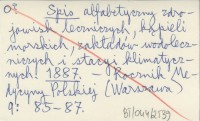 03 Spis alfabetyczny zdro-
jowisk leczniczych, kąpieli
morskich, zakładów wodolecz-
niczych i stacyi klimatycz-
nych. 1887. – Rocznik Me-
dycyny Polskiej (Warszawa)
9: 85-87.
BJ/044/2139